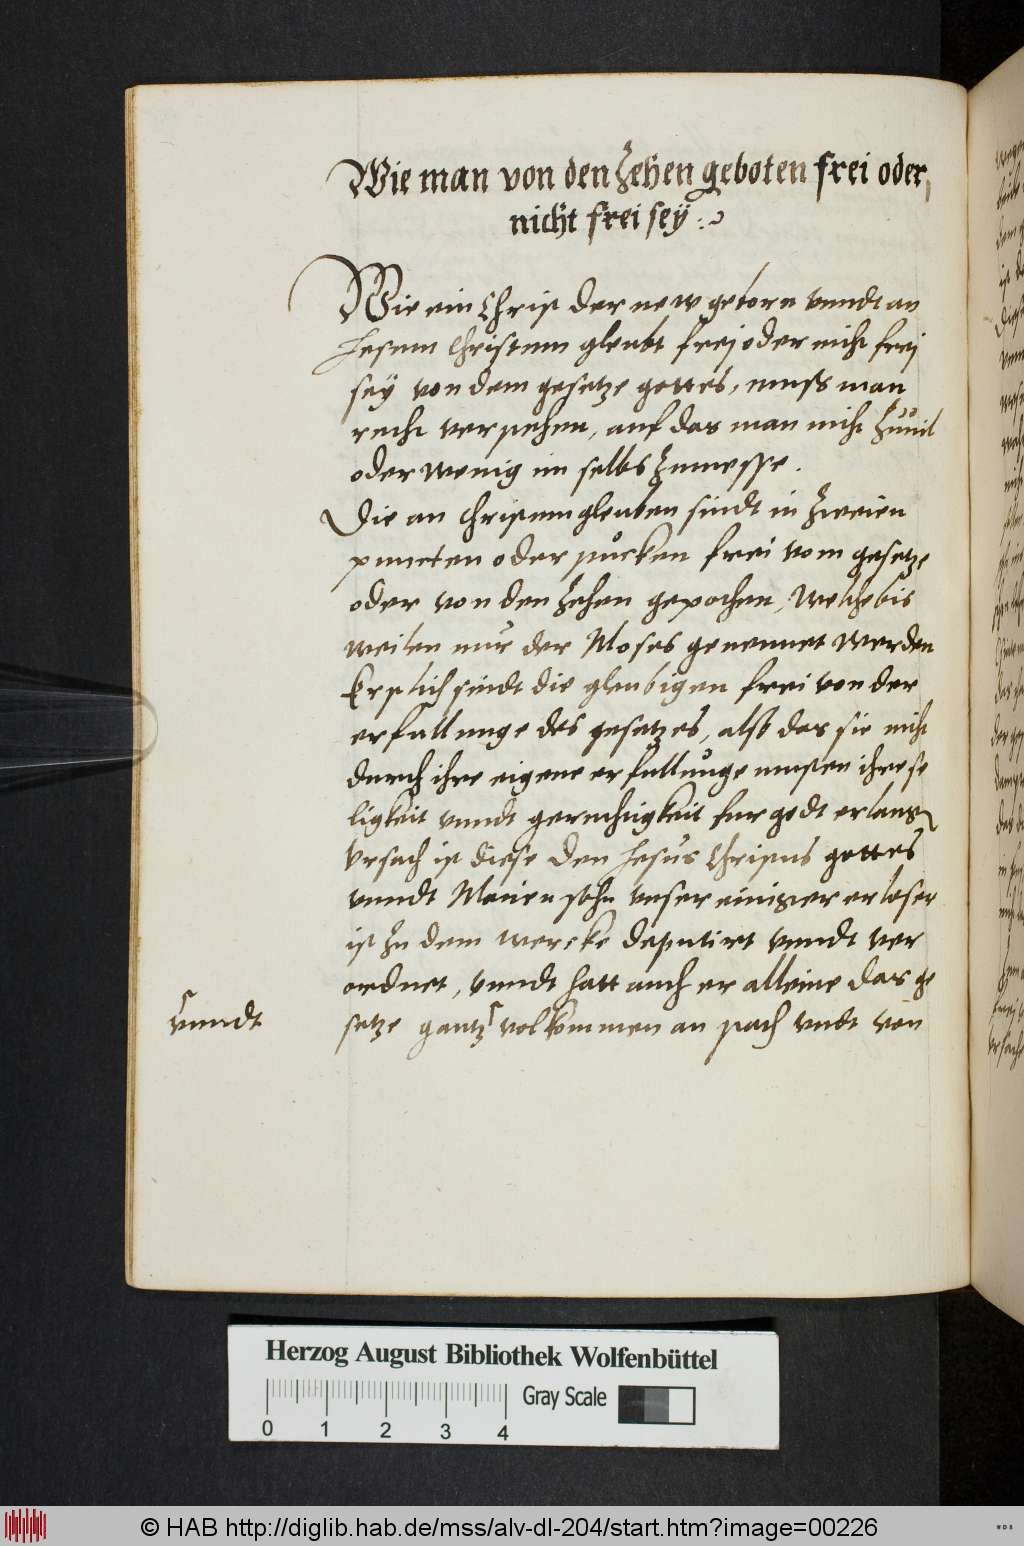 Wie man von den Zehen geboten frei oder,
nicht frei seÿ
Wie ein Christ der new geborn vnndt an
Jesum Christum gleubt frej oder nicht frej
seÿ von dem gesetze gottes, muss man
recht verstehen, auf das man nicht Zuuil
oder wenig im selbs Zumesse.
Die an Christum gleuben sindt in Zweien
puncten oder stucken frei vom gesetze
oder von den Zehen gepothen, Welche bis
weilen nur der Moses genennet werden
Erstlich sindt die gleubigen frei von der
erfullunge des gesetzes, alss das sie nicht
durch ihre eigene erfullunge mussen ihre se
ligkeit vnndt gerechtigkeit fur godt erlangen
Vrsach ist diese Den Jesus Christus gottes
vnndt Marien sohn vnser einiger erloser
ist Zu dem wercke deputirt vnndt ver
ordnet, vnndt hatt auch er alleine das ge
setze gantz volkommen an stach vndt von
vnndt
Herzog August Bibliothek Wolfenbüttel
Gray Scale
0 1 2 3 4
© HAB http://diglib.hab.de/mss/alv-dl-204/start.htm?image=00226